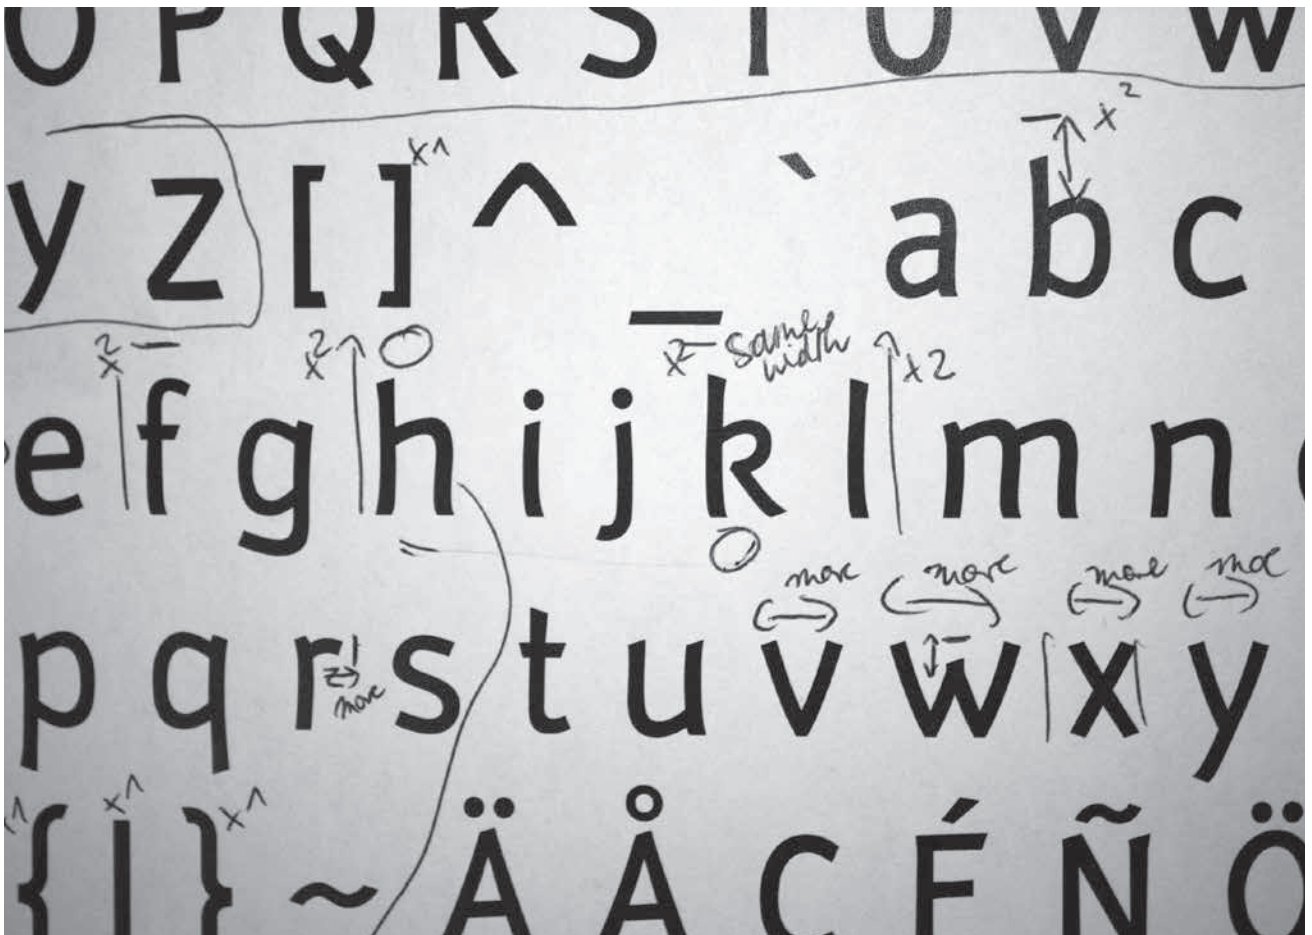 O P Q R S T U V W
x2
y z [ ] x1 ^ _ ` a b c
x2 x2 x2 same width x2
e f g h i j k l m n
more more more more
p q r s t u v w x y
more
x1 x1 x1
{ | } ~ Ä Å Ç É Ñ Ö